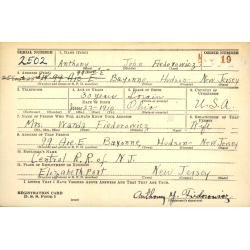 SERIAL NUMBER 1. NAME (Print) ORDER NUMBER
2502 Anthony John Fiedorowicz 19
2. ADDRESS (Print)
99 Ave E Bayonne Hudson New Jersey
3. TELEPHONE 4. AGE IN YEARS 5. PLACE OF BIRTH 6. COUNTRY OF CITIZENSHIP
30 years Lorain
DATE OF BIRTH
June 27-1910 Ohio U.S.A.
7. NAME OF PERSON WHO WILL ALWAYS KNOW YOUR ADDRESS 8. RELATIONSHIP OF THAT PERSON
Mrs. Wanda Fiedorowicz Wife
9. ADDRESS OF THAT PERSON
99 Ave E Bayonne Hudson New Jersey
10. EMPLOYER'S NAME
Central R.R. of N.J.
11. PLACE OF EMPLOYMENT OR BUSINESS
Elizabeth Port New Jersey
I AFFIRM THAT I HAVE VERIFIED ABOVE ANSWERS AND THAT THEY ARE TRUE.
REGISTRATION CARD
D. S. S. Form 1
Anthony J. Fiedorowicz